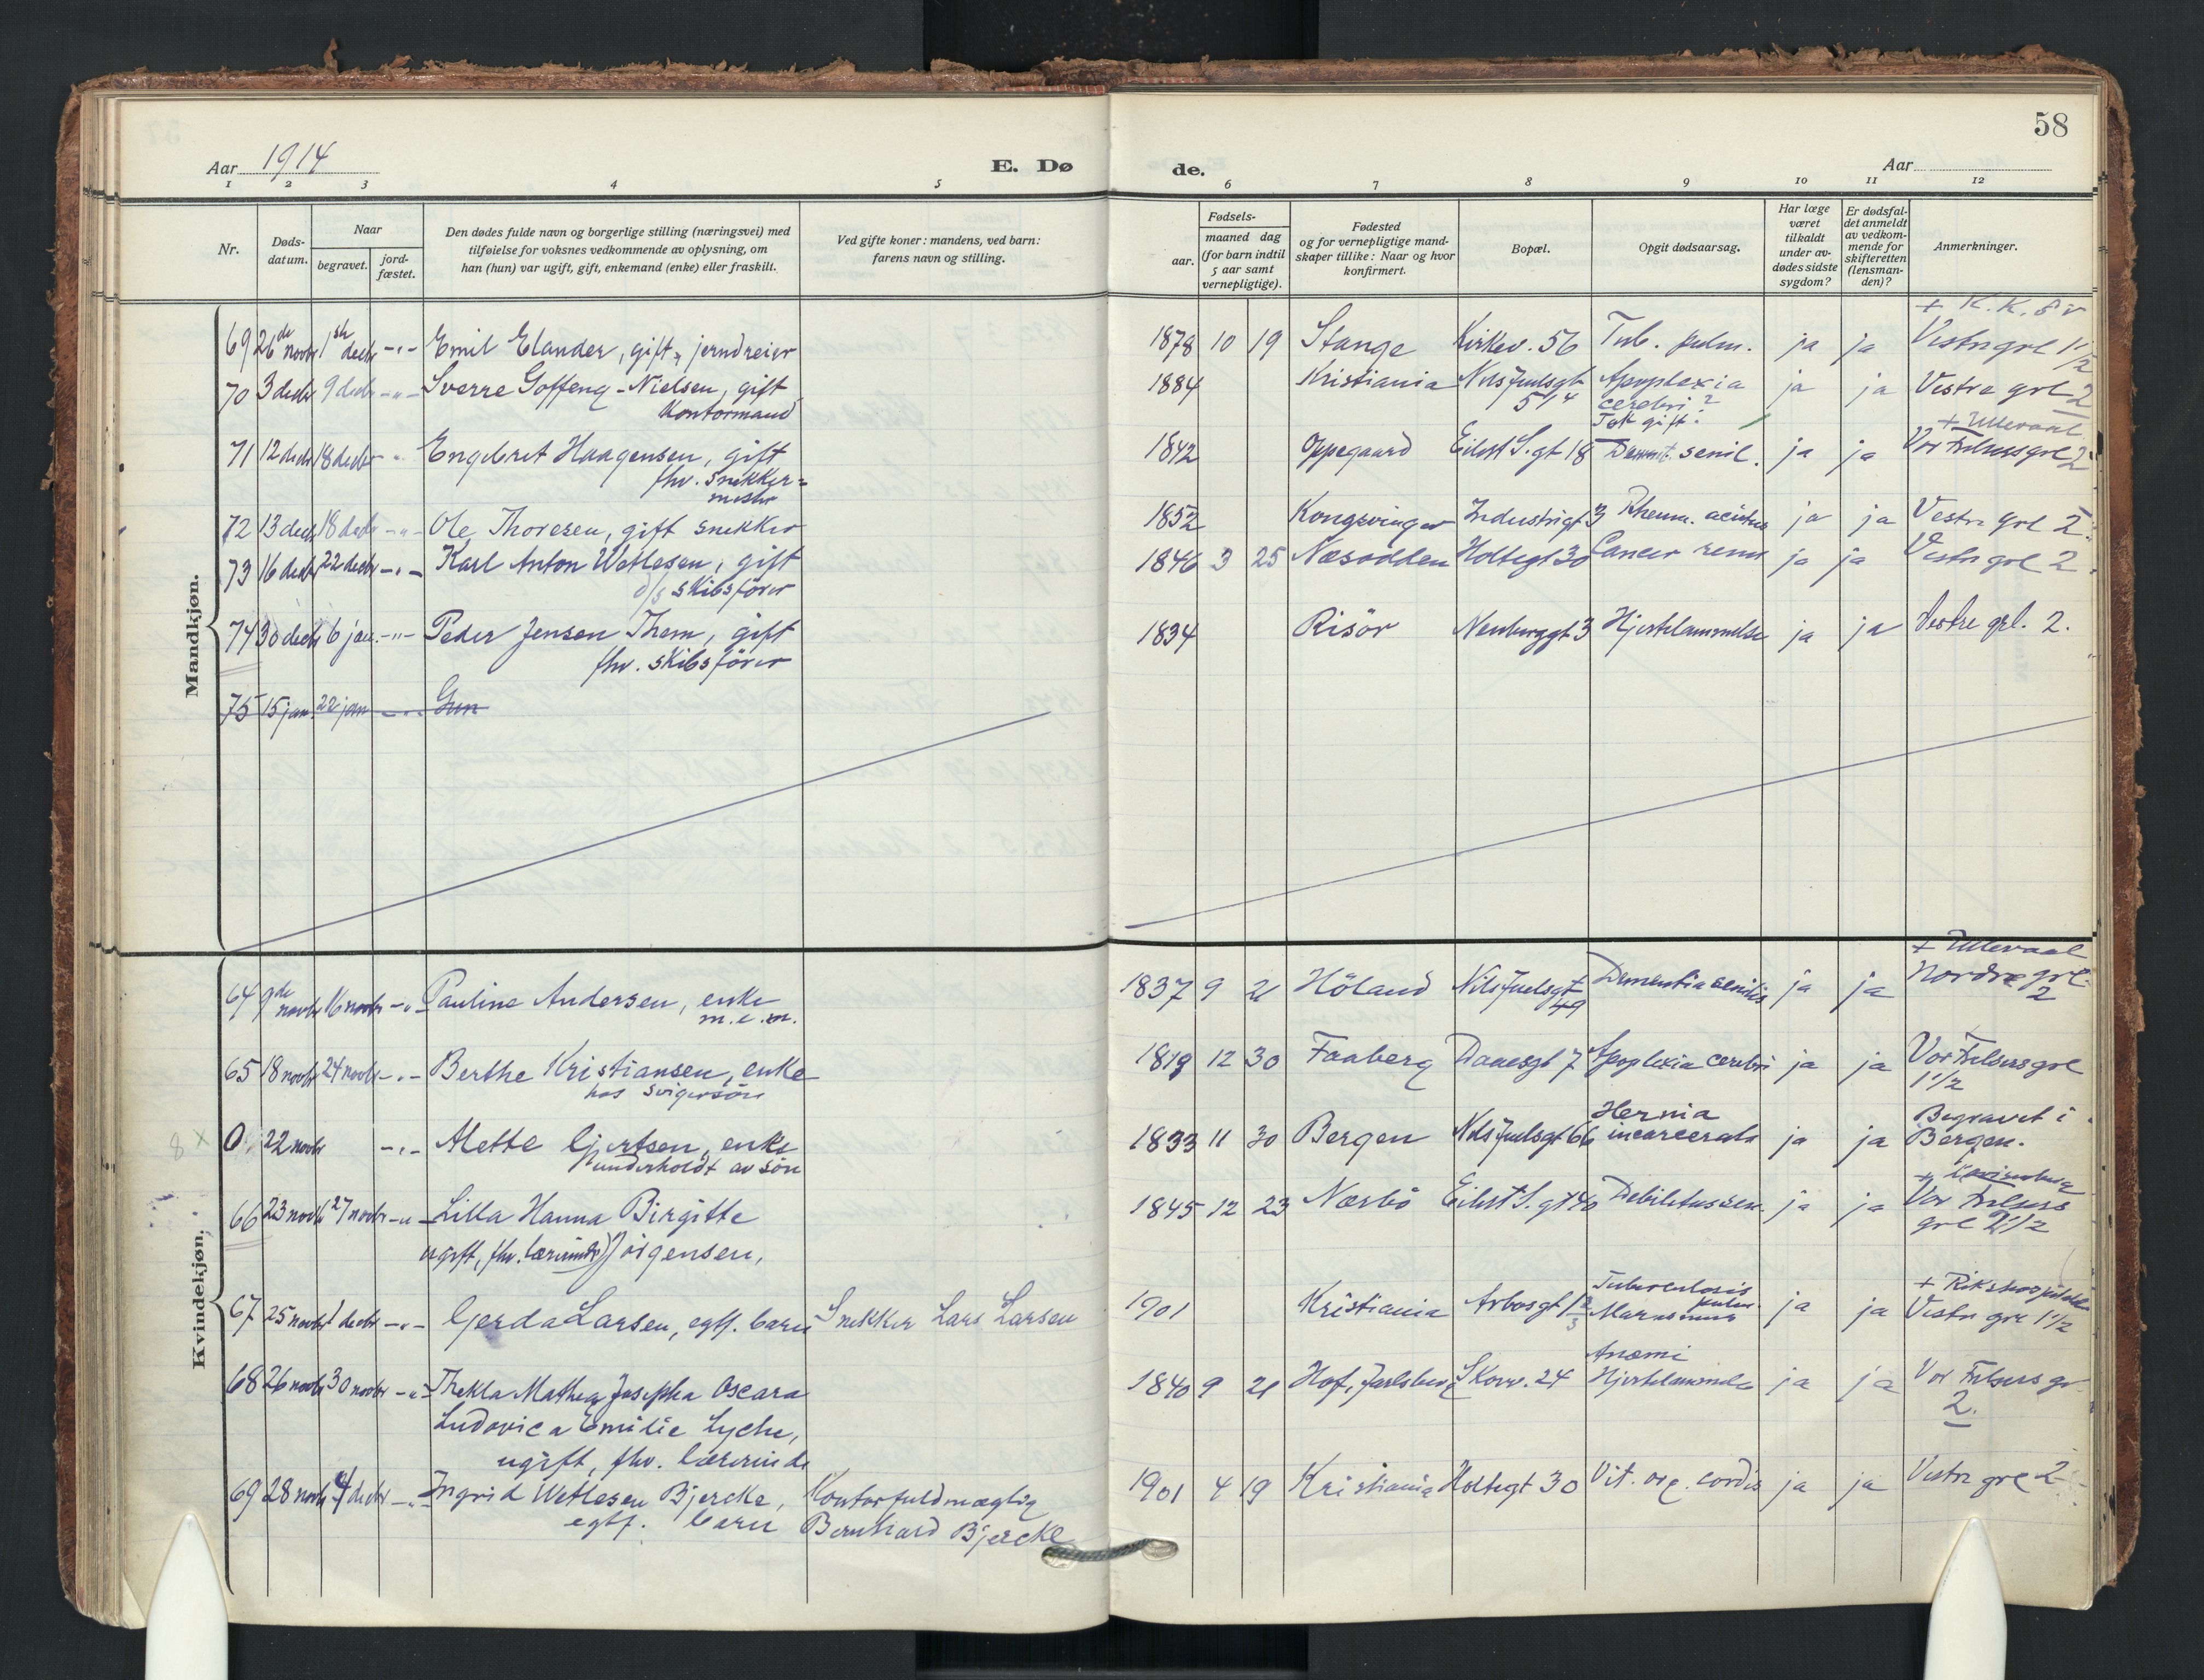 58
Aar 1914
E. Dø
de.
Aar
1 2 3 4 5 6 7 8 9 10 11 12
Nr.
Døds-
datum.
Naar
begravet.
jord-
fæstet.
Den dødes fulde navn og borgerlige stilling (næringsvei) med
tilføielse for voksnes vedkommende av oplysning, om
han (hun) var ugift, gift, enkemand (enke) eller fraskilt.
Ved gifte koner: mandens, ved barn:
farens navn og stilling.
Fødsels-
aar.
maaned dag
(for barn indtil
5 aar samt
vernepligtige).
Fødested
og for vernepligtige mand-
skaper tillike: Naar og hvor
konfirmert.
Bopæl.
Opgit dødsaarsag.
Har læge
været
tilkaldt
under av-
dødes sidste
sygdom?
Er dødsfal-
det anmeldt
av vedkom-
mende for
skifteretten
(lensman-
den)?
Anmerkninger.
Mandkjøn.
+ K. K. S v
69 26de novbr 1ste decbr -"- Emil Elander, gift, jerndreier 1878 10 19 Stange Kirkev. 56 Tub. pulm. ja ja Vestre grl 1 1/2
70 3 decbr 9 decbr -"- Sverre Goffeng-Nielsen, gift 1884 Kristiania Nils Juelsgt Apoplexia ja ja Vestre grl 2
Kontormand 51/4 cerebri?
Tok gift.
+ Ullevaal
71 12 decbr 18 decbr " Engebret Haagensen, gift 1842 Oppegaard Eilert S. gt 18 Dement. senil. ja ja Vor Frelsers grl 2
fhv. snekker=
mester
72 13 decbr 18 decbr -"- Ole Thoresen, gift snekker 1852 Kongsvinger Industrigt 3 Rheum. acutus ja ja Vestre grl 2.
73 16 decbr 22 decbr -"- Karl Anton Wetlesen, gift 1846 3 25 Næsodden Holtegt 30 Cancer renis ja ja Vestre grl 2.
d/s skibsfører
74 30 decbr 6 jan. -"- Peder Jensen Them, gift 1834 Risör Neuberggt 3 Hjertelammelse ja ja Vestre grl. 2.
fhv. skibsförer
75 15 jan. 22 jan -"- Gun
Kvindekjøn.
+ Ullevaal
64 9de novbr 16 novbr -"- Pauline Andersen, enke 1837 9 21 Höland Nils Juelsgt 49 Dementia senilis ja ja Nordre grl. 2
m. e. m.
65 18 novbr 24 novbr -"- Berthe Kristiansen, enke 1819 12 30 Faaberg Daaesgt 7 Apoplexia cerebri ja ja Vor Frelsers grl
hos svigersön 1 1/2
Hernia Begravet i
8 x 0 22 novbr -"- Mette Gjertsen, enke 1833 11 30 Bergen Nils Juelsgt 66 incarcerata ja ja Bergen.
underholdt av sön
66 23 novbr 27 novbr -"- Lilla Hanna Birgitte 1845 12 23 Nærbö Eilert S. gt 40 Debilitas sen. ja ja Vor Frelsers
ugift, fhv. lærerinde Jörgensen, grl 2 1/2
Tuberculosis pulm. + Rikshospitalet
67 25 novbr 1 decbr -"- Gjerda Larsen, egtf. barn Snekker Lars Larsen 1901 Kristiania Arbosgt 1 Marasmus ja ja Vestre grl 1 1/2
Anæmi
68 26 novbr 30 novbr -"- Thekla Mathea Josepha Oscara 1840 9 21 Hof, Jarlsberg Skovv. 24 Hjertelammelse ja ja Vor Frelsers gr
Ludovica Emilie Lyche, 2.
ugift, fhv. lærerinde
69 28 novbr 4 decbr -"- Ingrid Wetlesen Bjercke, Kontorfuldmægtig 1901 4 19 Kristiania Holtegt 30 Vit. org. cordis ja ja Vestre grl 2
egtf. barn Bernhard Bjercke